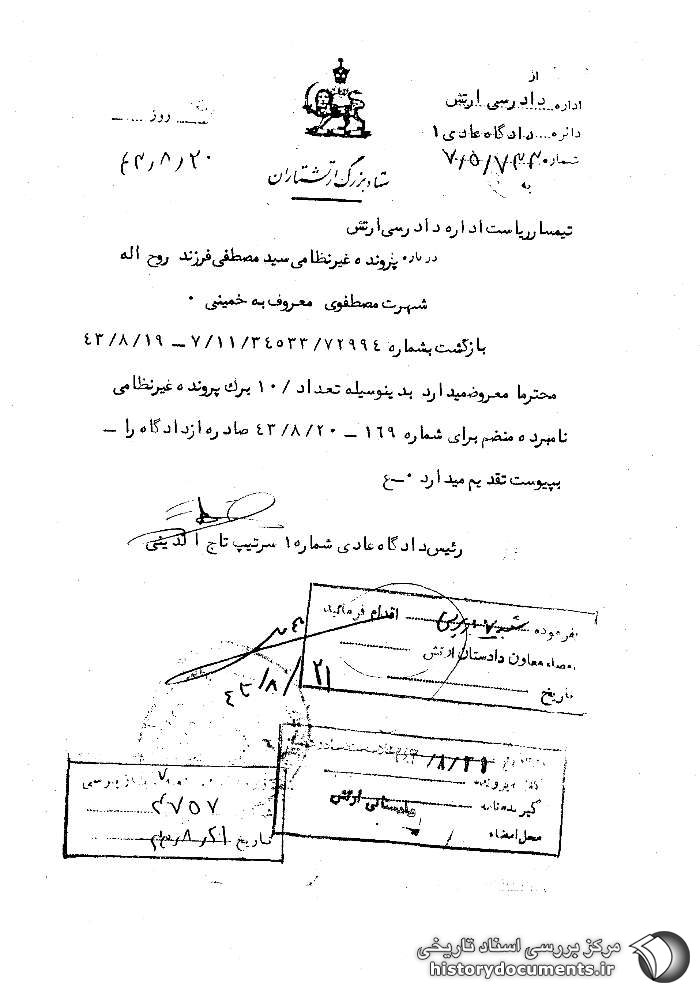 از
اداره دادرسی ارتش
دائره دادگاه عادی ۱
شماره ۷/۵/۷۳۳
به
روز
۴۳/۸/۲۰
ستاد بزرگ ارتشتاران
تیمسار ریاست اداره دادرسی ارتش
درباره پرونده غیرنظامی سید مصطفی فرزند روح اله
شهرت مصطفوی معروف به خمینی ۰
بازگشت بشماره ۷/۱۱/۳۴۵۳۳/۷۲۹۹۴ – ۴۳/۸/۱۹
محترما معروضمیدارد بدینوسیله تعداد /۱۰ برك پرونده غیرنظامی
نامبرده منضم برای شماره ۱۶۹ – ۴۳/۸/۲۰ صادره ازدادگاه را –
بپیوست تقدیم میدارد ۰ –ع
رئیس دادگاه عادی شماره ۱ سرتیپ تاج الدینی
بفرموده شعبه ۷ بازپرسی اقدام فرمائید
امضاء معاون دادستان ارتش
تاریخ
۴۳/۸/۲۱
۴۳/۸/۲۱
گیرنده نامه دادستانی ارتش
محل امضاء
۷ بازپرسی
۲۷۵۷
تاریخ ۴۳/۸/۲۱
مرکز بررسی اسناد تاریخی
historydocuments.ir